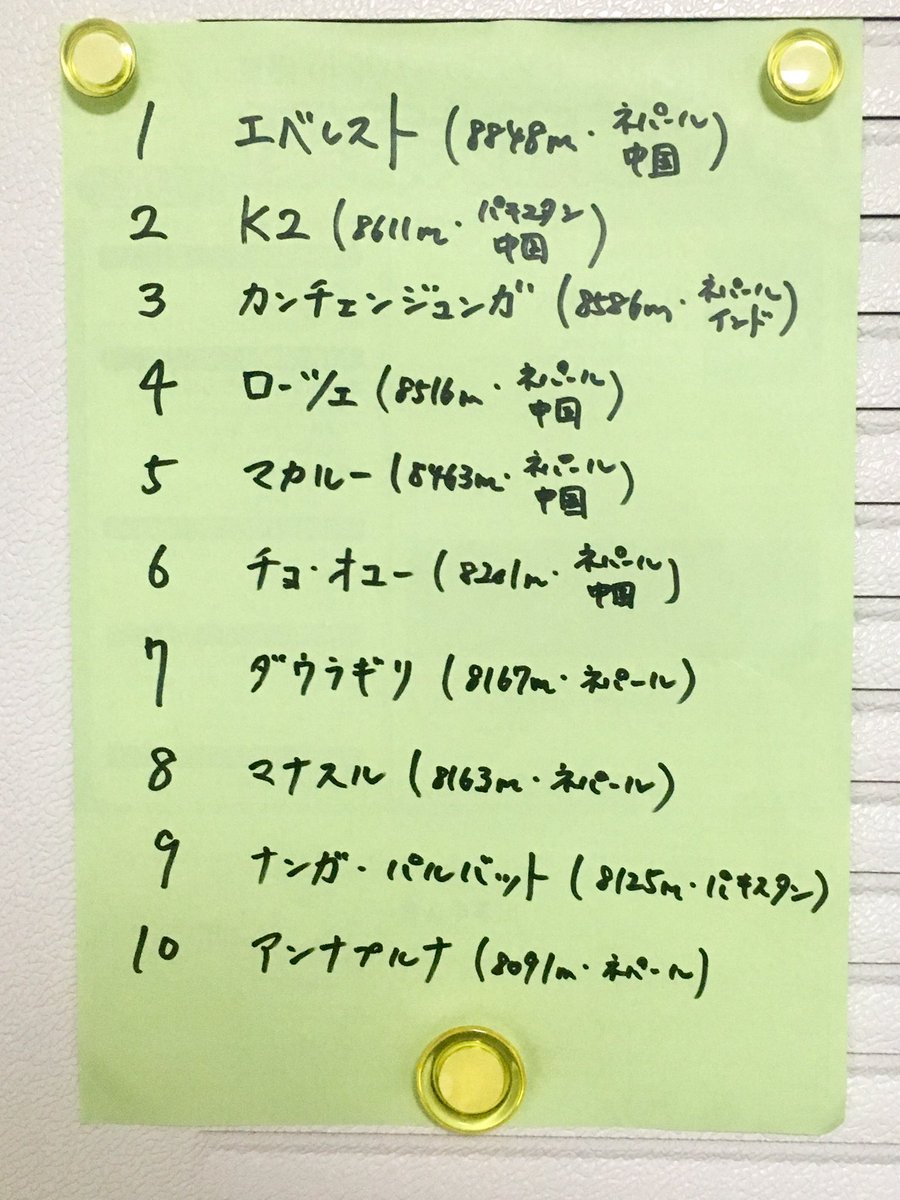 1 エベレスト (8848m・ネパール 中国)
2 K2 (8611m・パキスタン 中国)
3 カンチェンジュンガ (8586m・ネパール インド)
4 ローツェ (8516m・ネパール 中国)
5 マカルー (8463m・ネパール 中国)
6 チョ・オユー (8201m・ネパール 中国)
7 ダウラギリ (8167m・ネパール)
8 マナスル (8163m・ネパール)
9 ナンガ・パルバット (8125m・パキスタン)
10 アンナプルナ (8091m・ネパール)